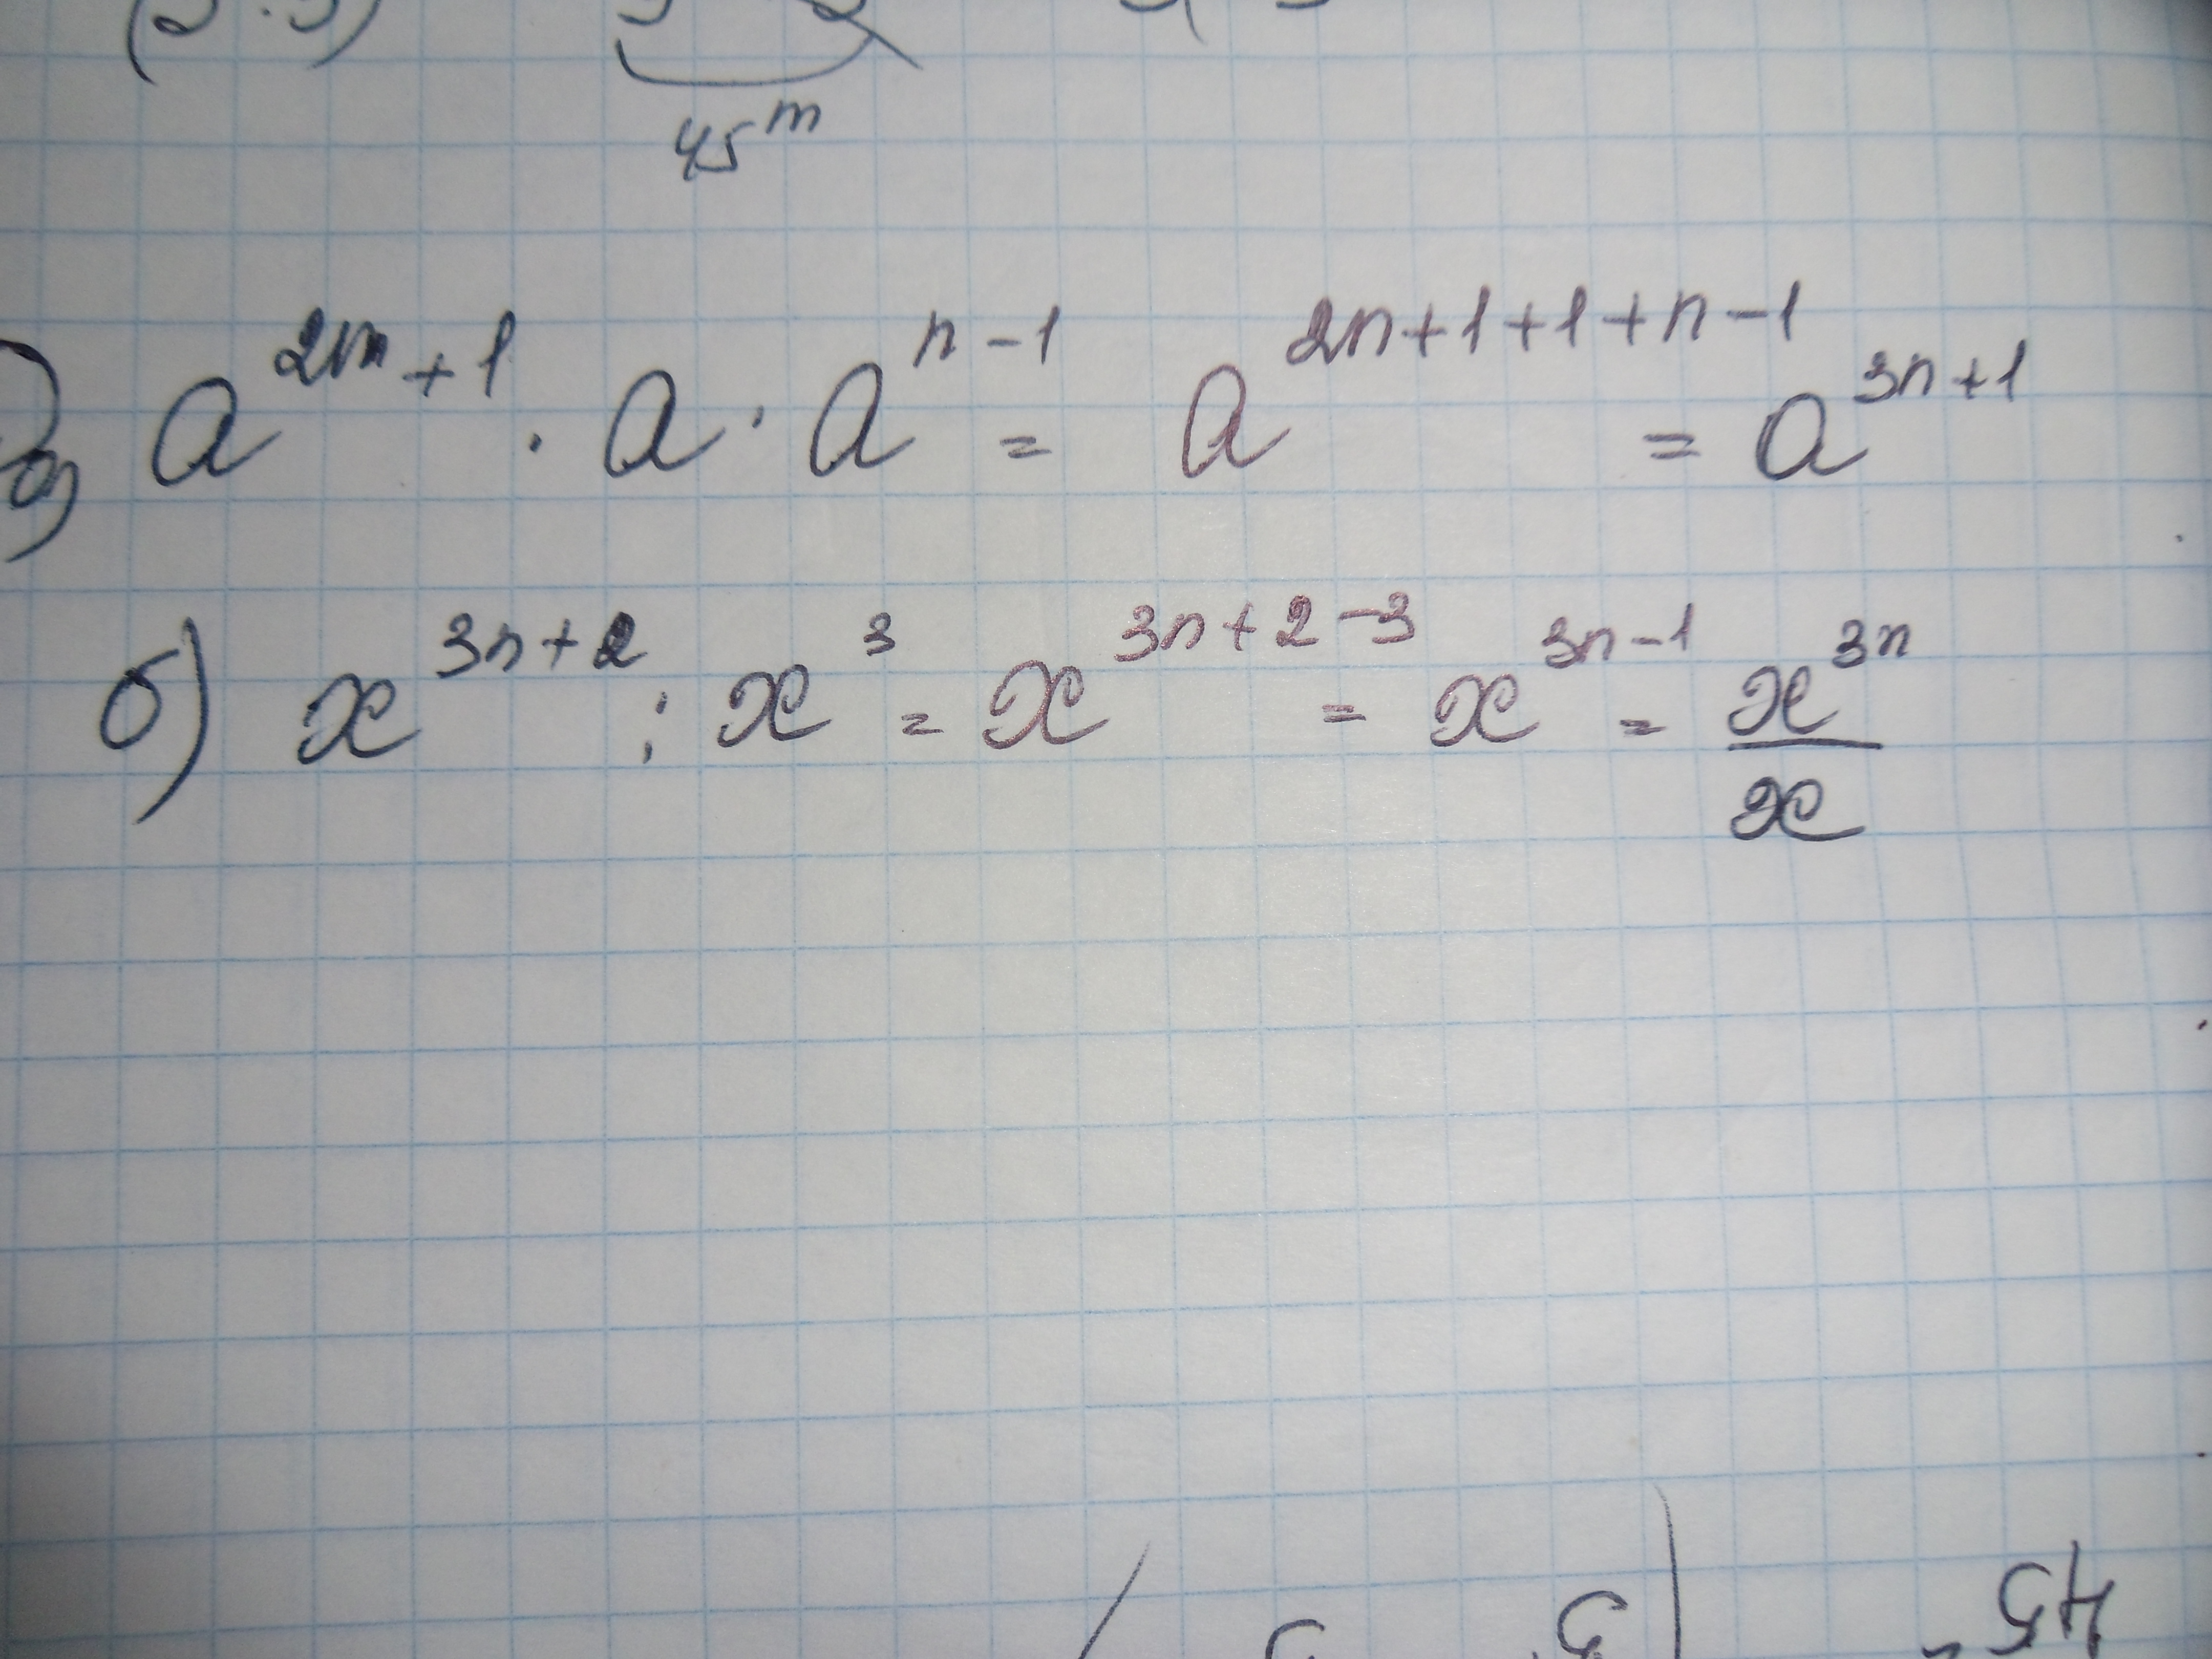 45^m
a) a^{2n+1} · a · a^{n-1} = a^{2n+1+1+n-1} = a^{3n+1}
б) x^{3n+2} : x^3 = x^{3n+2-3} = x^{3n-1} = \frac{x^{3n}}{x}
45